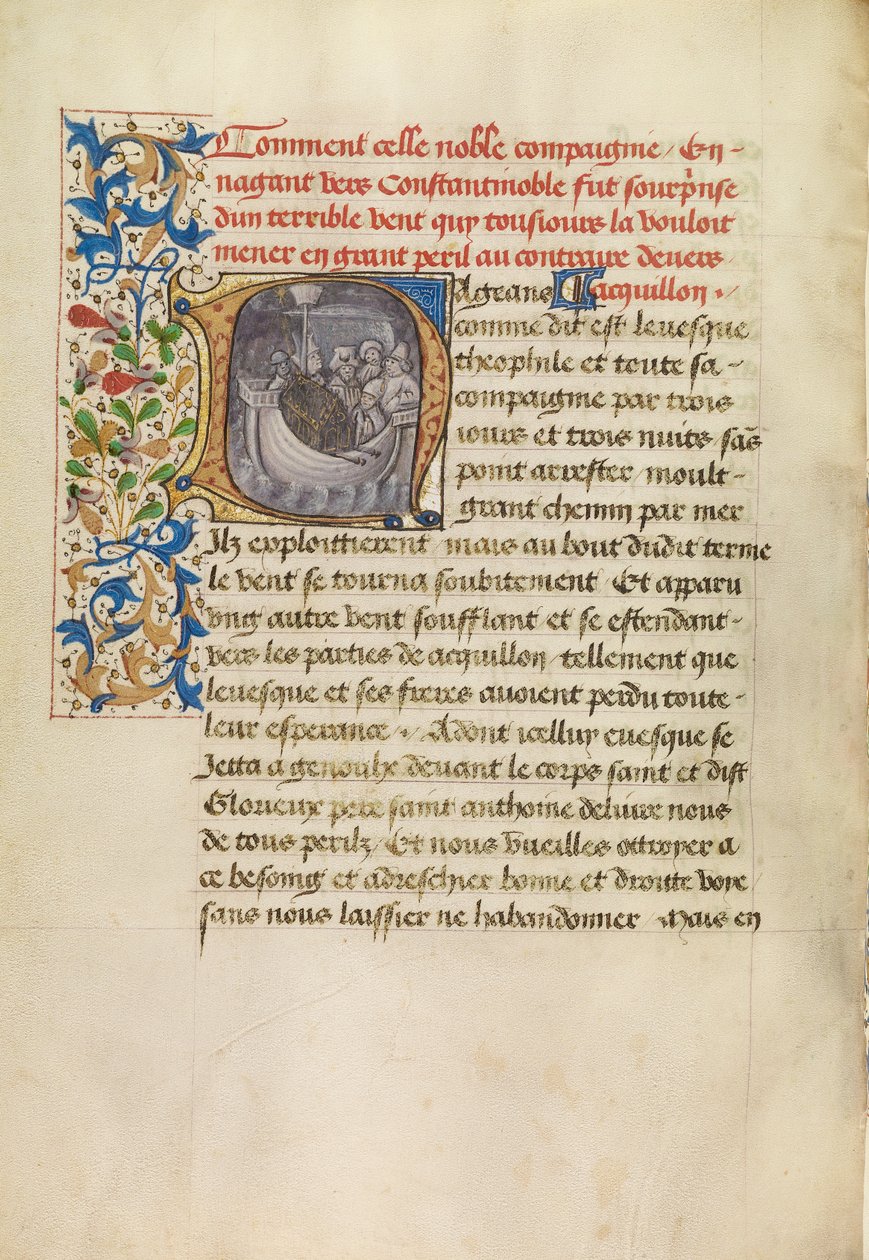 Comment celle noble compaignie / En-
nagant vers Constantinoble fut sourprise
dun terrible vent quy tousiours la vouloit
mener en grant peril au contraire devers
Nageans lacquillon .
comme dit est levesque
theophile et toute sa -
compaignie par trois
iours et trois nuits sās
point arrester / moult -
grant chemin par mer
Ilz exploittierent / mais au bout dudit terme
le vent se tourna soubitement / Et apparu
vng autre vent soufflant et se estendant -
vers les parties de acquillon / tellement que
levesque et ses freres avoient perdu toute -
leur esperance . / Adont icelluy evesque se
Jetta a genoulx devant le corps saint et dist
Glorieux pere saint anthoine delivre nous
de tous perilz / Et nous vueilles ottroyer a
ce besoing et adreschier bonne et droite voye /
sans nous laissier ne habandonner / Mais en